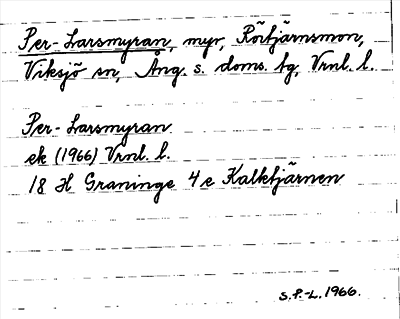 Per-Larsmyran, myr, Rörtjärnsmon,
Viksjö sn, Ång. s. doms. tg, Vrnl. l.
Per-Larsmyran
ek (1966) Vrnl. l.
18 H Graninge 4e Kalktjärnen
S.P.-L. 1966.